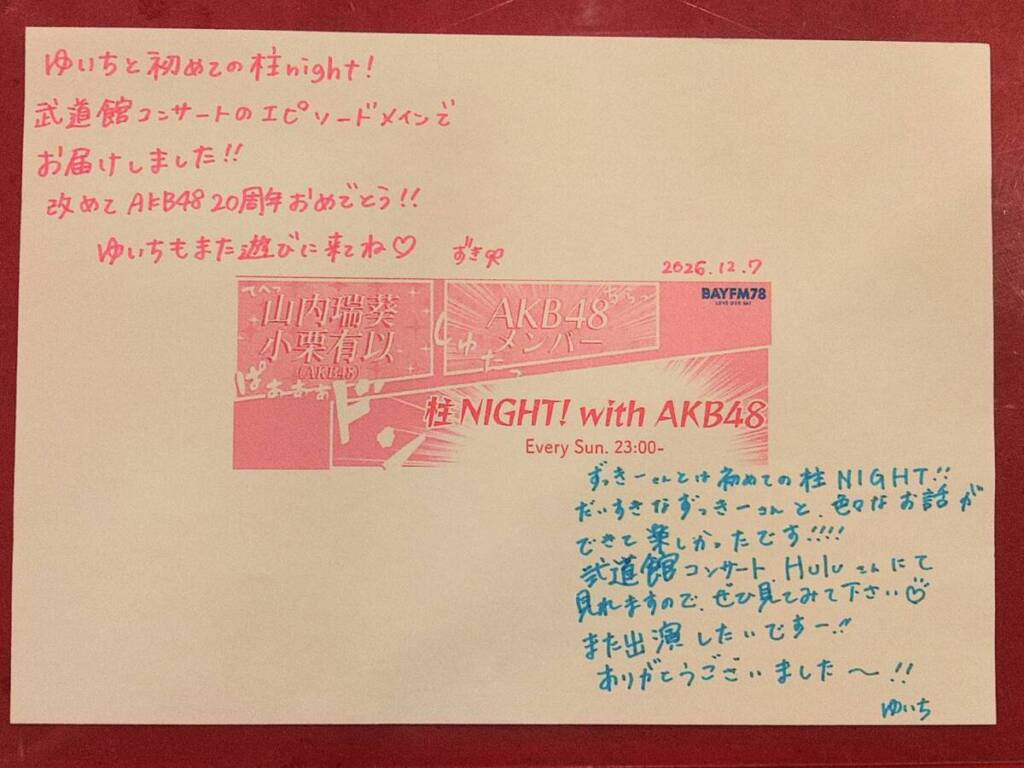 ゆいちと初めての柱night!
武道館コンサートのエピソードメインで
お届けしました!!
改めて AKB48 20周年おめでとう!!
ゆいちもまた遊びに来てね♡
ずき
2026.12.7
BAYFM78
てへっ
山内瑞葵
小栗有以
(AKB48)
ちらっ
AKB48
メンバー
しゅたっ
ぱぁぁぁぁ
ド
柱NIGHT! with AKB48
Every Sun. 23:00-
ずっきーさんとは初めての柱NIGHT!!
だいすきなずっきーさんと、色々なお話が
できて楽しかったです!!!!
武道館コンサート、Huluさんにて
見れますので、ぜひ見てみて下さい♡
また出演したいですー!!
ありがとうございました〜!!
ゆいち